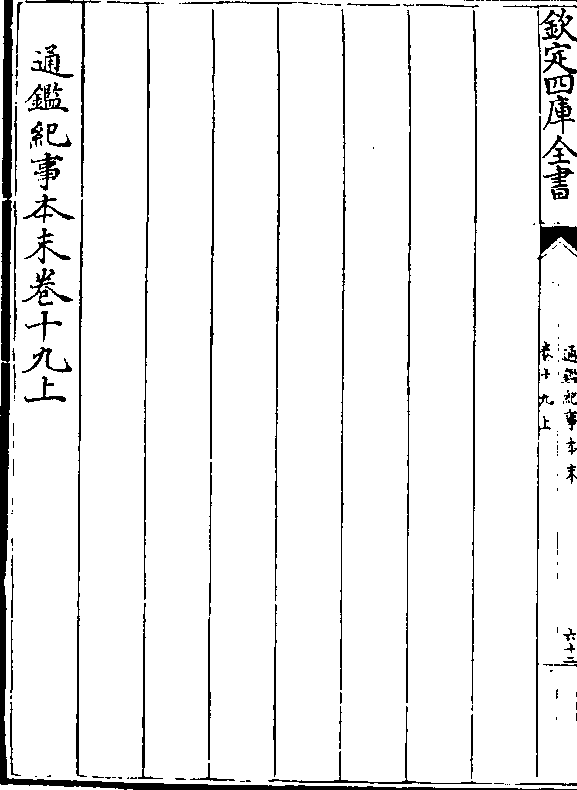 欽定四庫全書
通鑑紀事本末
卷十九上
六十二
通鑑紀事本末卷十九上